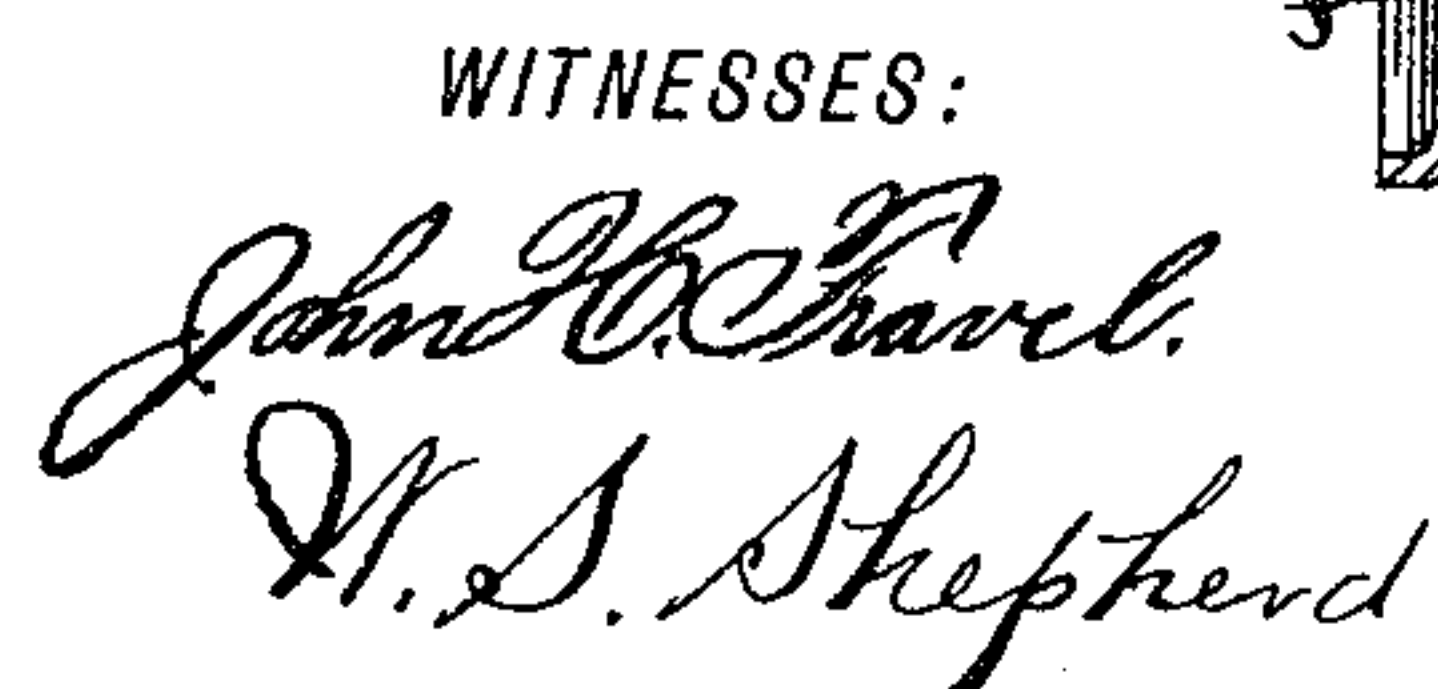 WITNESSES:
John H. C. Travel.
W. S. Shepherd